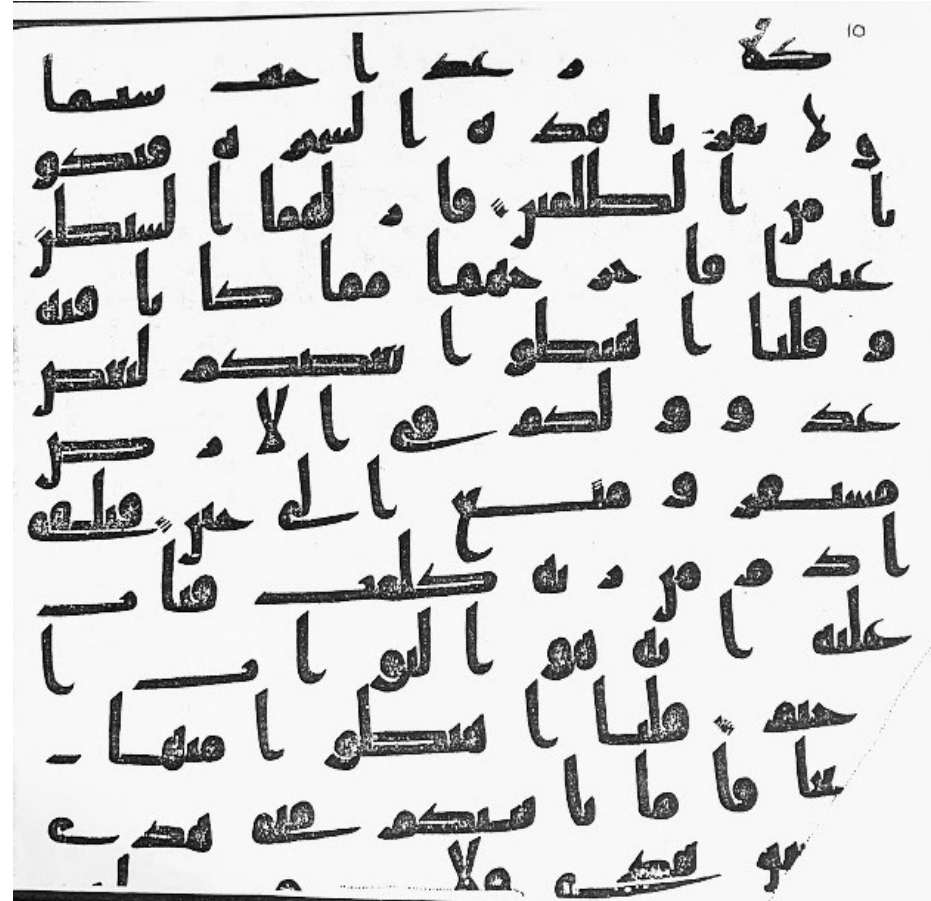 10
كلا ر غد ا حيث شئتما
و لا تقر با هذه ا لشجر ة فتكو
نا من ا لظلمين فا ز لهما ا لشيطن
عنها فا خر جهما مما كا نا فيه
و قلنا ا هبطو ا بعضكم لبعض
عد و و لكم في ا لا ر ض
مستقر و متع ا لى حين فتلقى
ا د م من ر به كلمت فتا ب
عليه ا نه هو ا لتو ا ب ا
حيم قلنا ا هبطو ا منها
يعا فا ما يا تينكم مني هدى
فلا